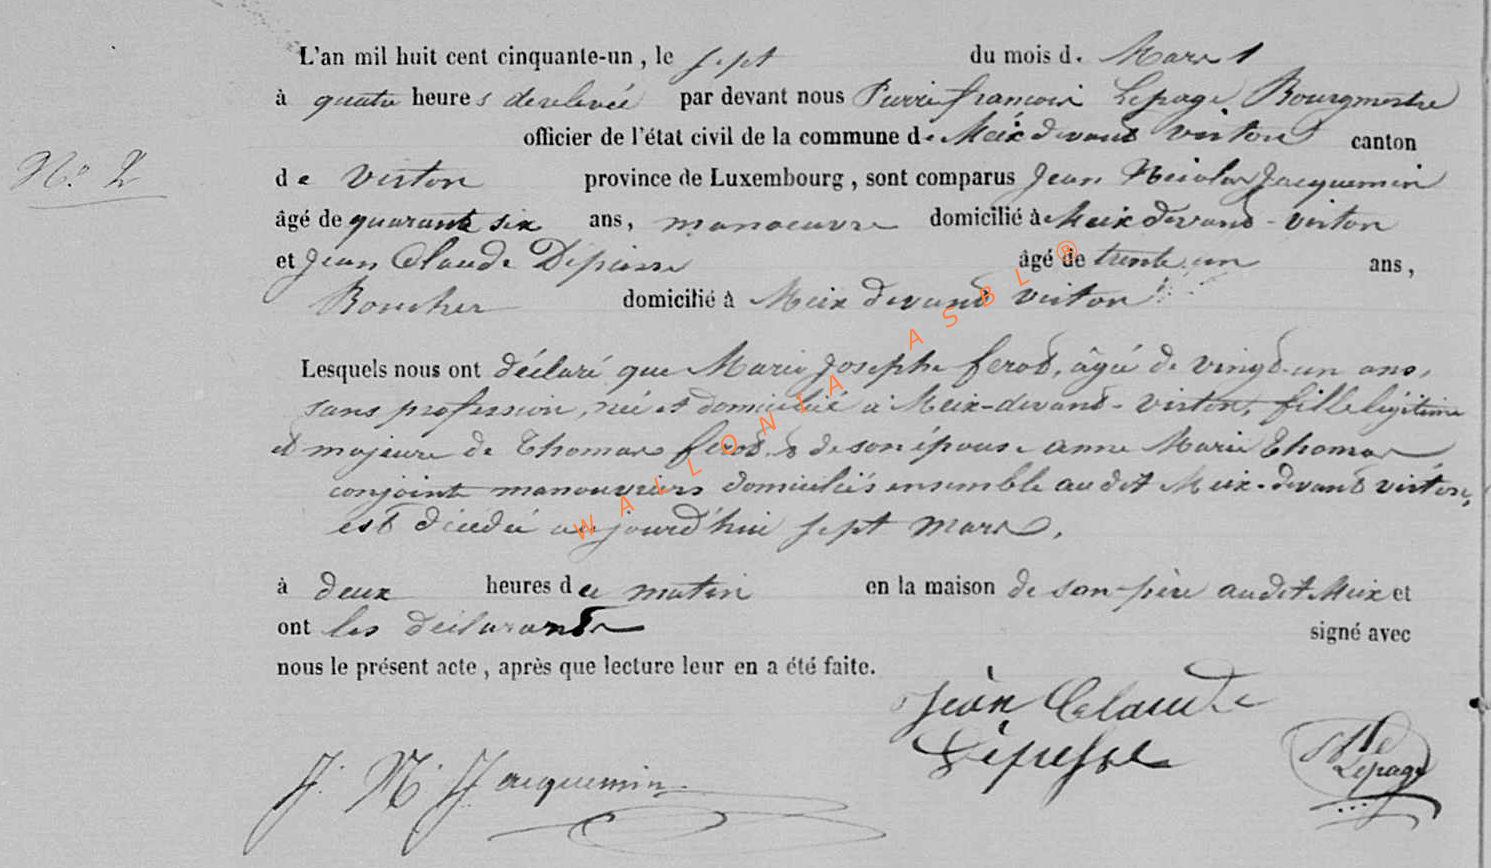 L'an mil huit cent cinquante-un, le sept du mois de Mars
à quatre heures de relevée par devant nous Pierre françois Lepage Bourgmestre
officier de l'état civil de la commune de Meix devant virton canton
N.° 2
de virton province de Luxembourg, sont comparus Jean Nicolas Jacquemin
âgé de quarante six ans, manoeuvre domicilié à Meix devant - virton
et Jean Claude Dépiesse âgé de trente un ans,
Boucher domicilié à Meix devant virton
Lesquels nous ont déclaré que Marie Josephe ferot, âgée de vingt-un ans,
sans profession, née et domiciliée à Meix-devant-virton, fille légitime
et majeure de Thomas ferot & de son épouse anne Marie Thomas
conjoints manouvriers domiciliés ensemble audit Meix-devant virton,
est décédée aujourd'hui sept mars,
à deux heures du matin en la maison de son père audit Meix et
ont les déclarants signé avec
nous le présent acte, après que lecture leur en a été faite.
Jean Claude
Dépiesse
Lepage
J. N. Jacquemin
WALLONIA ASBL ®